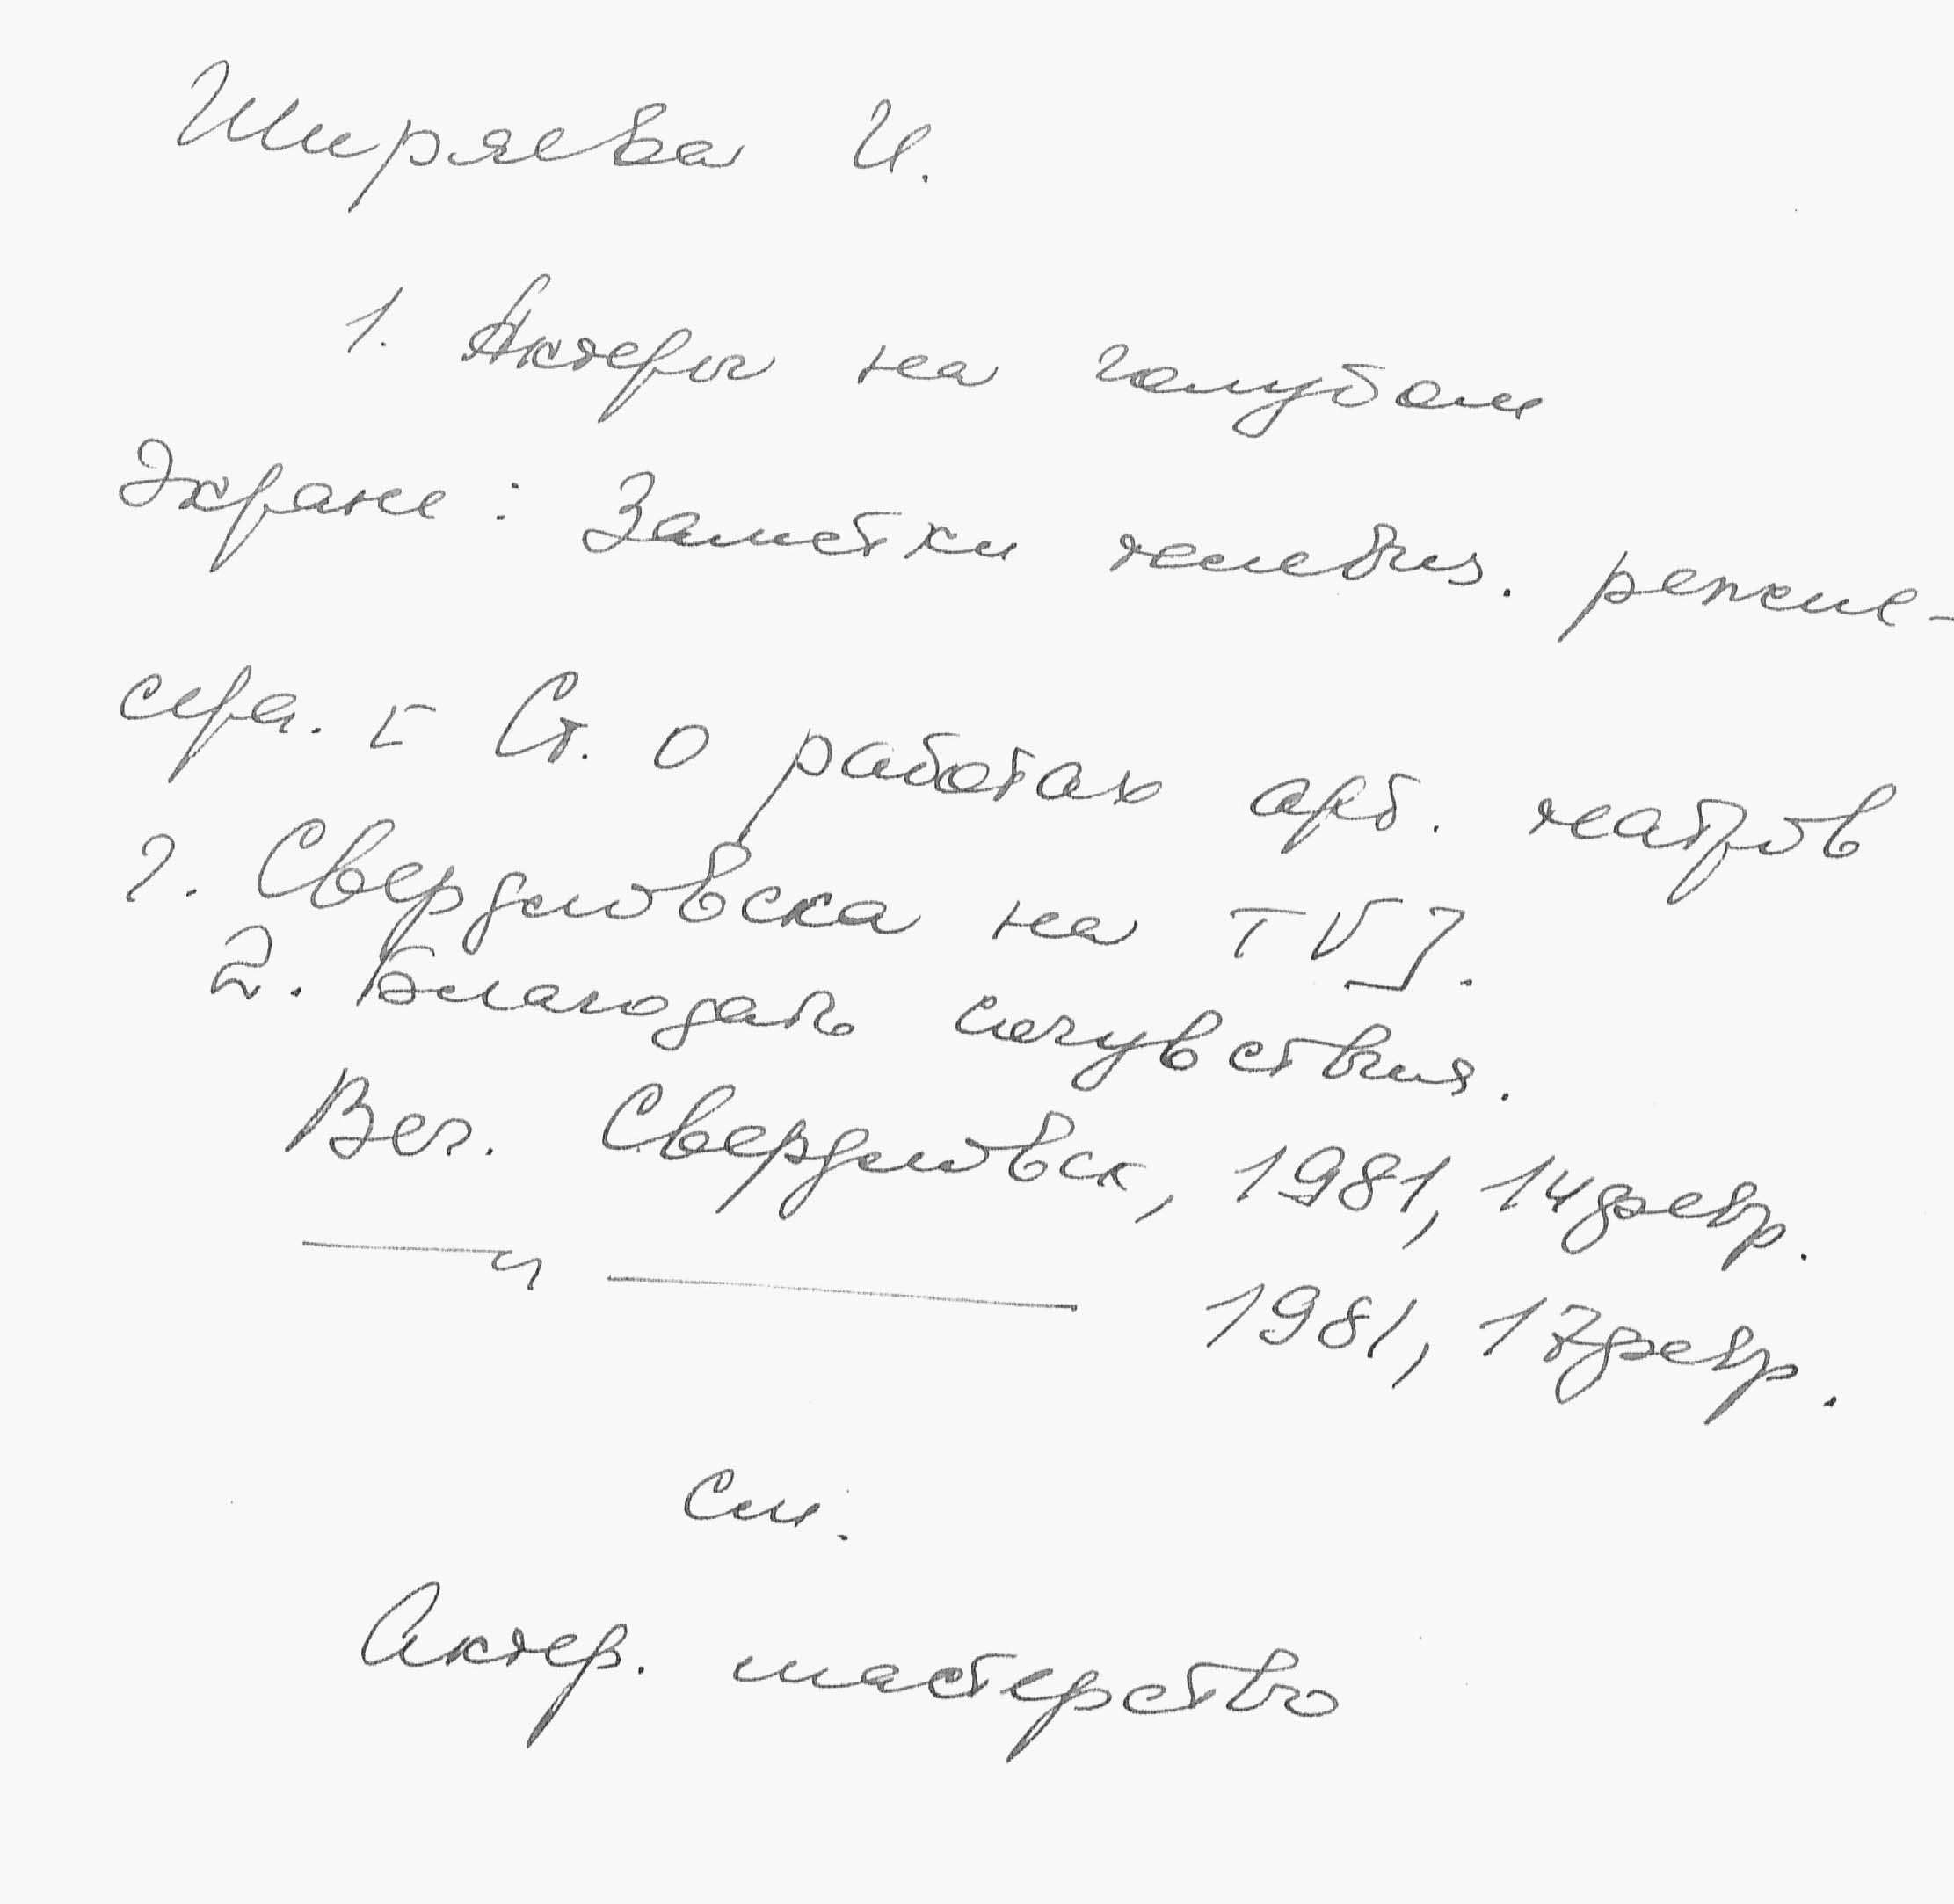 Ширяева И.
1. Актеры на голубом
экране: Заметки телевиз. режис-
сера. [ Ст. о работах арт. театров
г. Свердловска на TV].
2. Благодать сочувствия.
Веч. Свердловск, 1981, 14 февр.
—— " —— 1981, 17 февр.
см.
Актер. мастерство